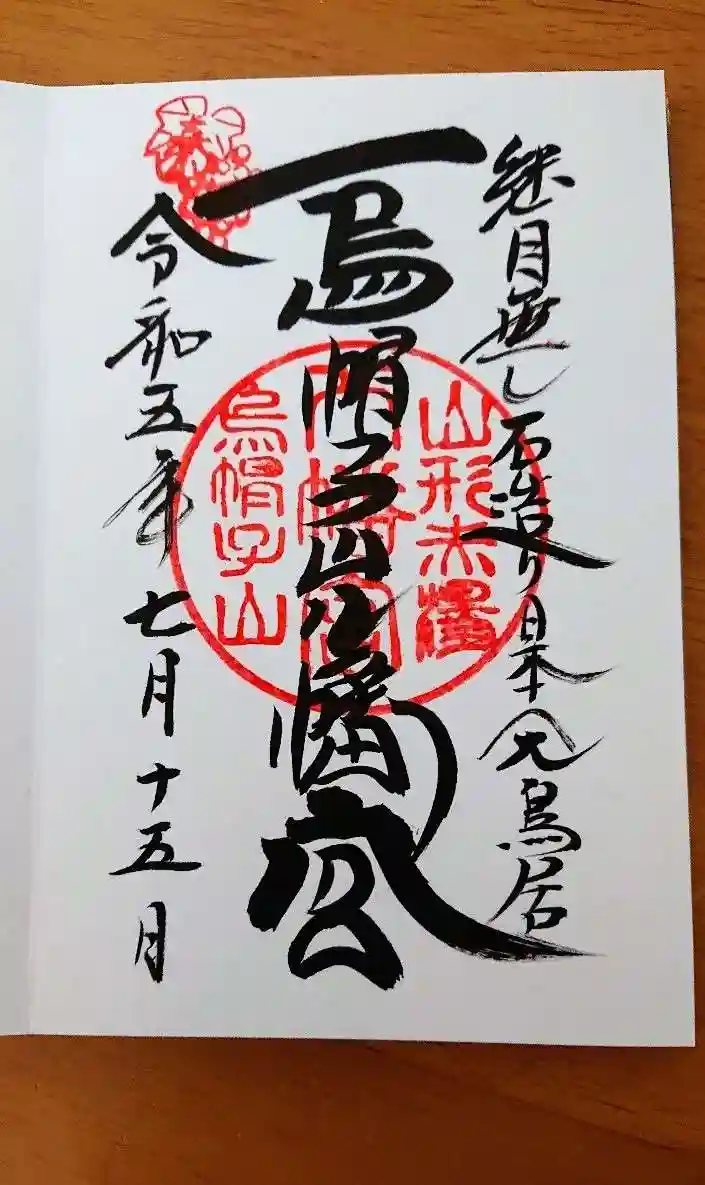 継目無し石造り日本一大鳥居
烏帽子山八幡宮
令和五年七月十五日
山形赤湯
八幡宮
烏帽子山